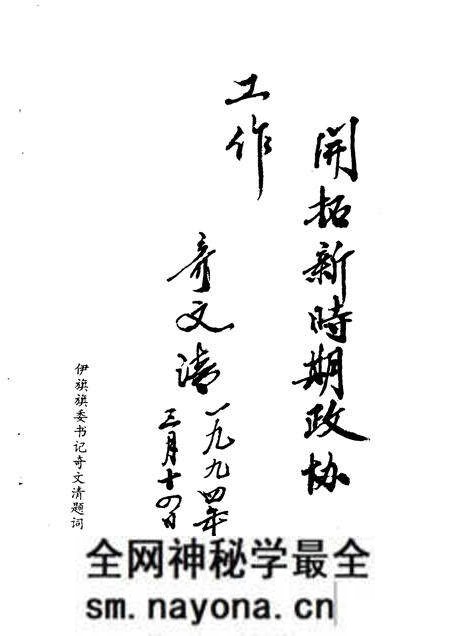 開拓新時期政协
工作
奇文清
一九九四年
三月十四日
伊旗旗委书记奇文清题词
全网神秘学最全
sm.nayona.cn